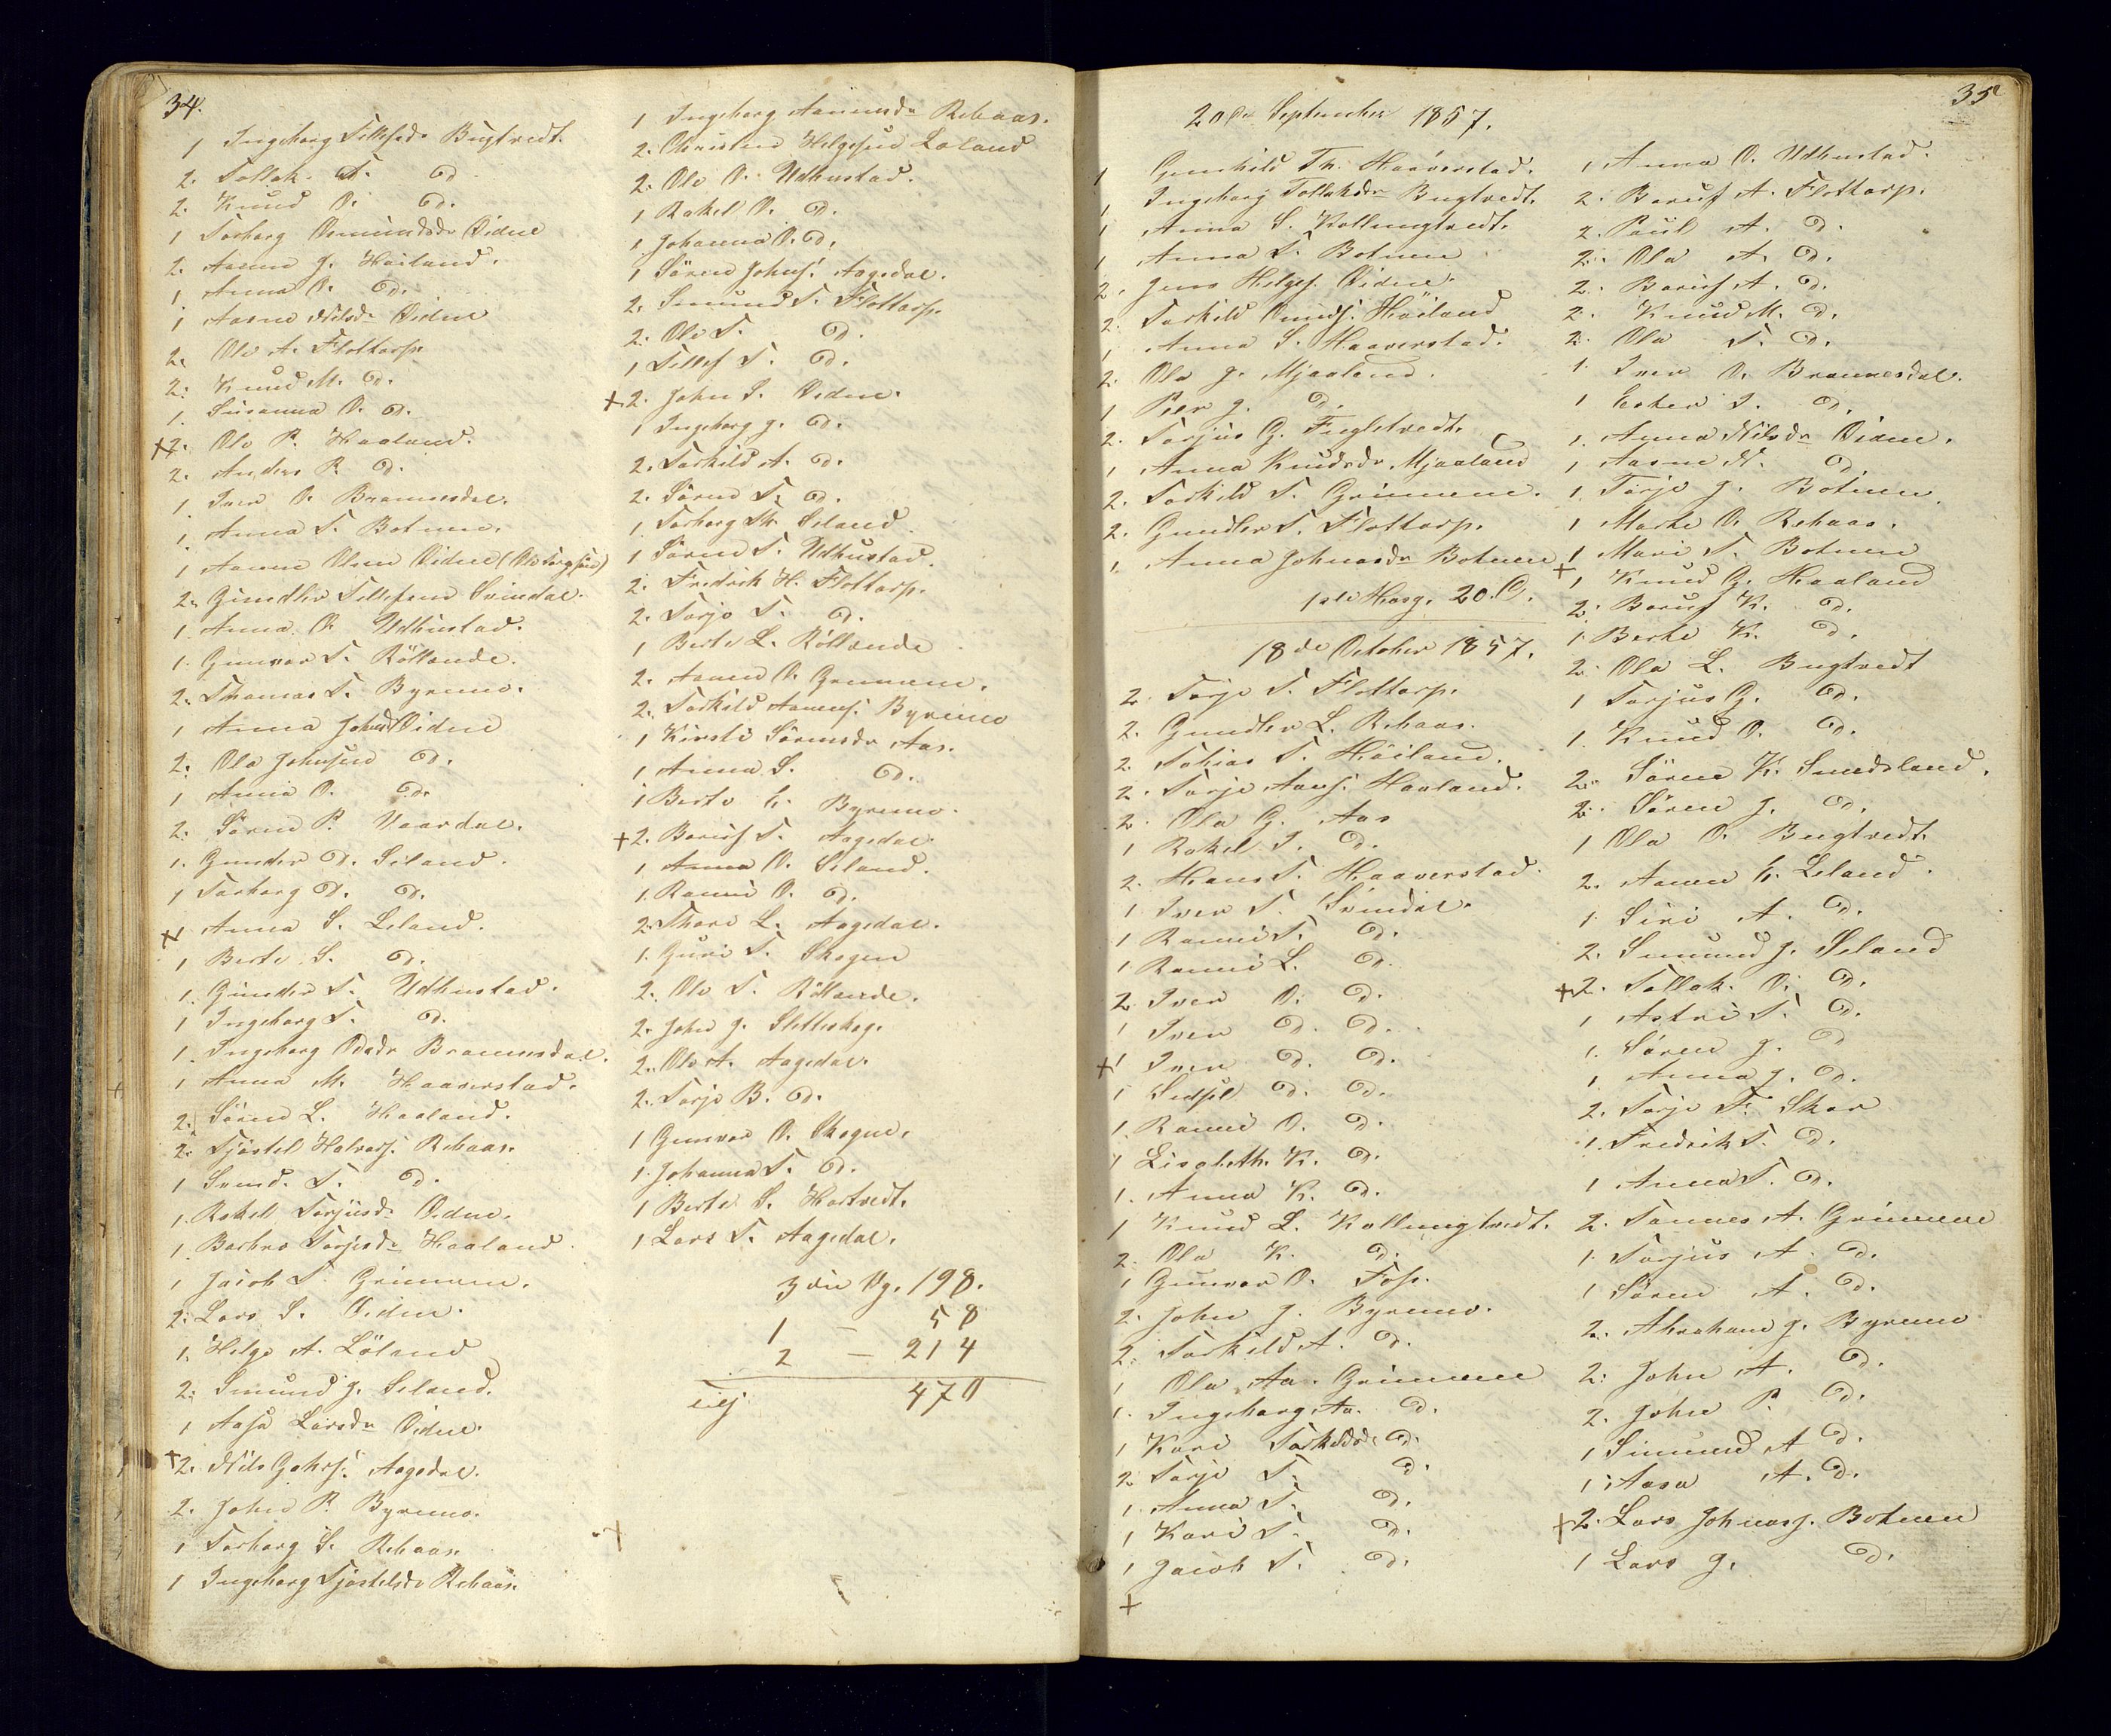 34.
1 Ingeborg Tellefsdr Bugtvedt.
2. Tollak T. Od
2. Knud O. Od.
1 Torborg Omundsdr Eidne
2. Aanen J. Høiland.
1 Anna O. Od.
1 Aasne Nilsdr Eidne
2. Ole A. Flottorp
2. Knud M. Od.
1. Susanna O. Od.
+2. Ole P. Haaland.
2. Anders P. Od.
1 Iver O. Brannesdal.
1. Anna T. Botnen.
1 Aanen Olsen Eidne
2. Gundler Tellefsen Svindal.
1. Anna O. Udhustad.
1. Gunvor T. Röllende.
2. Thomas T. Byremo.
1 Anna Johnsd Eidne
2. Ole Johnsen Od.
1 Anna O. Od.
2. Søren P. Vaardal.
1. Gunder Od. Seland.
1 Torborg Od. Od.
+1 Anna S. Leland.
1 Berte S. Od.
1. Gunder T. Udhustad.
1 Ingeborg T. Od.
1. Ingeborg Odsdr Brannesdal.
1 Anna M. Haaverstad.
2. Søren L. Haaland.
2. Tjøstel Halvors. Rebaas.
1 Svend. T. Od.
1. Rakel Torjusdr Eidne.
1. Barbro Torjesdr Haaland.
1 Jacob T. Grimmen.
2. Lars S. Eidne.
1. Helge A. Löland
2. Smund J. Seland.
1 Aasa Larsdr Eidne.
+2. Nils Aagedal.
2. John P. Byremo.
1 Torborg S. Rebaas.
1 Ingeborg Tjøstelsdr Rebaas.
1 Ingeborg Aanensdr Rebaas.
2. Christen Helgesen Loland
2. Ole O. Udhustad.
1 Rakel O. Od.
1 Johanna O. Od.
1 Søren Johns. Aagedal.
2. Smund T. Flottorp.
2. Ole T. Od.
1 Tellef T. Od.
+2. John S. Eidne.
1 Ingeborg J. Od.
2. Torkild A. Od.
2. Søren T. Od.
1. Torborg Th Seland
1 Søren T. Udhustad.
2. Fredrik H. Flottorp.
2. Torje T. Od.
1 Berte L. Röllende
2. Aanen O. Grimmen.
2. Torkild Aanens. Byremo
1 Kirsti Sørensdr Aas.
1 Anna S. Od.
1 Berte E. Byremo.
+2. Boruf T. Aagedal
1 Anna O. Seland.
1. Ranni O. Od.
2. Thore L. Aagedal.
1. Guri T. Skogen
2. Ole T. Röllende.
2. John J. Sletteskog.
2. Ole A. Aagedal.
2. Torje B. Od.
1 Gunvor O. Skogen.
1. Johanna T. Od.
1 Berte S. Hortvedt.
1 Lars T. Aagedal.
3die Kg. 198.
1 – 58
2 – 214
470
35
20de September 1857.
1 Gunhild Th. Haaverstad.
1 Ingeborg Tollaksdr Bugtvedt.
1 Anna S. Kollungtvedt.
1 Anna T. Botnen
2. Jens Helges. Eidne.
2. Torkild Omunds. Høiland
1 Anna S. Haaverstad.
2. Ole J. Mjaaland.
1 Peer J. Od.
2. Torjus G. Fugletvedt.
1 Anna Knudsdr Mjaaland
2. Torkild T. Grimmene.
2. Gundler T. Flottorp.
1. Anna Johnasdr Botnen
1ste Hovg. 20.
18de October 1857.
2 Torje T. Flottorp.
2. Gundler L. Rebaas.
2. Tobias T. Høiland.
2. Torje Aans. Haaland.
2 Ole G. Aas
1 Rakel T. Od.
2. Hans T. Haaverstad.
1 Iver T. Svindal.
1 Ranni T. Od.
1 Ranni L. Od.
2 Iver O. Od.
1 Iver Od. Od.
+1 Iver Od. Od.
1 Sidsel Od. Od.
1. Ranni O. Od.
1 Lisabeth K. Od.
1. Anna K. Od.
1 Knud L. Kollungtvedt.
2. Ole K. Od.
1 Gunvor O. Foss.
2. John J. Byremo.
2. Torkild A. Od.
1 Ole Aa. Grimmene
1. Ingeborg Aa. Od.
1 Kari Torkildsdr Od.
2 Torje T. Od.
1. Anna T. Od.
1 Kari T. Od.
1 Jacob T. Od.
+
1 Anna O. Udhustad.
2. Boruf A. Flottorp.
2. Paul A. Od.
2. Ole A. Od.
2. Boruf A. Od.
2. Knud M. Od.
2. Ole T. Od.
1. Iver O. Brannesdal.
1 Ester I. Od.
1. Anna Nilsdr Eidne.
1 Aasne N. Od.
1. Torje J. Botnen.
1 Marte O. Rebaas.
1 Mari T. Botnen
+1 Knud G. Haaland
2. Boruf K. Od.
1. Berte K. Od.
2. Ole L. Bugtvedt
1 Torjus G. Od.
1. Knud O. Od.
2. Søren K. Smedsland.
2. Søren J. Od.
1 Ole O. Bugtvedt.
2. Aanen E. Leland.
1. Siri A. Od.
2. Smund J. Seland
+2. Tollak O. Od.
1 Astri T. Od.
1. Søren J. Od
1. Anna J. Od.
2. Torje F. Skar
1. Fredrik T. Od.
1 Anna T. Od.
2. Tønnes A. Grimmene
1. Torjus A. Od.
1 Søren A. Od.
2. Abraham J. Byremo
2. John A. Od.
2. John P. Od.
1 Simund A Od.
1. Aasa A. Od.
+2. Lars Johnass. Botnen
1 Lars J. Od.